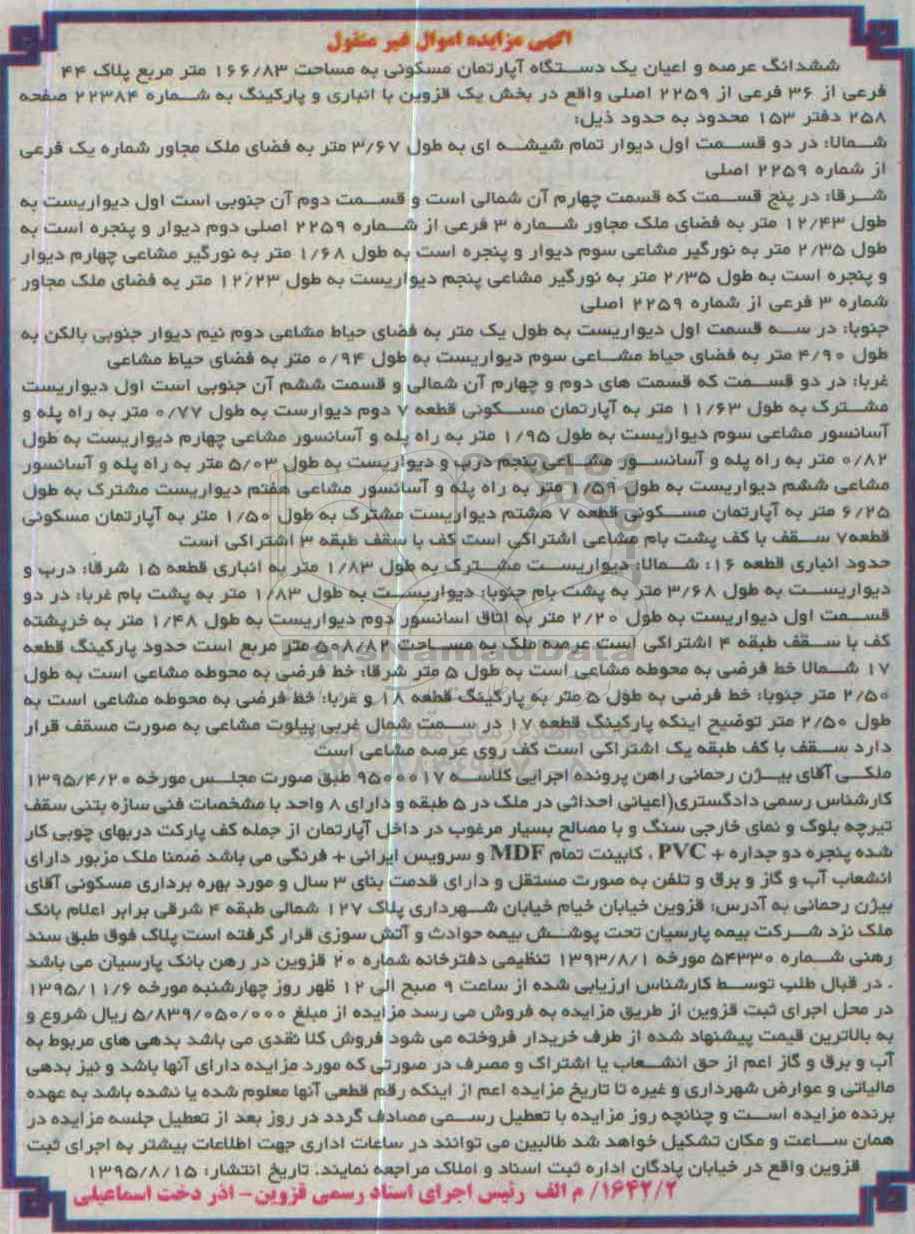 آگهی مزایده اموال غیر منقول
ششدانگ عرصه و اعیان یک دستگاه آپارتمان مسکونی به مساحت ۱۶۶/۸۳ متر مربع پلاک ۴۴
فرعی از ۳۶ فرعی از ۲۲۵۹ اصلی واقع در بخش یک قزوین با انباری و پارکینگ به شماره ۲۲۳۸۴ صفحه
۲۵۸ دفتر ۱۵۳ محدود به حدود ذیل:
شمالا: در دو قسمت اول دیوار تمام شیشه ای به طول ۳/۶۷ متر به فضای ملک مجاور شماره یک فرعی
از شماره ۲۲۵۹ اصلی
شرقا: در پنج قسمت که قسمت چهارم آن شمالی است و قسمت دوم آن جنوبی است اول دیواریست به
طول ۱۲/۴۳ متر به فضای ملک مجاور شماره ۳ فرعی از شماره ۲۲۵۹ اصلی دوم دیوار و پنجره است به
طول ۲/۳۵ متر به نورگیر مشاعی سوم دیوار و پنجره است به طول ۱/۶۸ متر به نورگیر مشاعی چهارم دیوار
و پنجره است به طول ۲/۳۵ متر به نورگیر مشاعی پنجم دیواریست به طول ۱۲/۲۳ متر به فضای ملک مجاور
شماره ۳ فرعی از شماره ۲۲۵۹ اصلی
جنوبا: در سه قسمت اول دیواریست به طول یک متر به فضای حیاط مشاعی دوم نیم دیوار جنوبی بالکن به
طول ۴/۹۰ متر به فضای حیاط مشاعی سوم دیواریست به طول ۰/۹۴ متر به فضای حیاط مشاعی
غربا: در دو قسمت که قسمت های دوم و چهارم آن شمالی و قسمت ششم آن جنوبی است اول دیواریست
مشترک به طول ۱۱/۶۳ متر به آپارتمان مسکونی قطعه ۷ دوم دیوارست به طول ۰/۷۷ متر به راه پله و
آسانسور مشاعی سوم دیواریست به طول ۱/۹۵ متر به راه پله و آسانسور مشاعی چهارم دیواریست به طول
۰/۸۲ متر به راه پله و آسانسور مشاعی پنجم درب و دیواریست به طول ۵/۰۳ متر به راه پله و آسانسور
مشاعی ششم دیواریست به طول ۱/۵۹ متر به راه پله و آسانسور مشاعی هفتم دیواریست مشترک به طول
۶/۲۵ متر به آپارتمان مسکونی قطعه ۷ هشتم دیواریست مشترک به طول ۱/۵۰ متر به آپارتمان مسکونی
قطعه۷ سقف با کف پشت بام مشاعی اشتراکی است کف با سقف طبقه ۳ اشتراکی است
حدود انباری قطعه ۱۶: شمالا: دیواریست مشترک به طول ۱/۸۳ متر به انباری قطعه ۱۵ شرقا: درب و
دیواریست به طول ۳/۶۸ متر به پشت بام جنوبا: دیواریست به طول ۱/۸۳ متر به پشت بام غربا: در دو
قسمت اول دیواریست به طول ۲/۲۰ متر به اتاق آسانسور دوم دیواریست به طول ۱/۴۸ متر به خرپشته
کف با سقف طبقه ۴ اشتراکی است عرصه ملک به مساحت ۵۰۸/۸۲ متر مربع است حدود پارکینگ قطعه
۱۷ شمالا خط فرضی به محوطه مشاعی است به طول ۵ متر شرقا: خط فرضی به محوطه مشاعی است به طول
۲/۵۰ متر جنوبا: خط فرضی به طول ۵ متر به پارکینگ قطعه ۱۸ و غربا: خط فرضی به محوطه مشاعی است به
طول ۲/۵۰ متر توضیح اینکه پارکینگ قطعه ۱۷ در سمت شمال غربی پیلوت مشاعی به صورت مسقف قرار
دارد سقف با کف طبقه یک اشتراکی است کف روی عرصه مشاعی است
ملکی آقای بیژن رحمانی راهن پرونده اجرایی کلاسه ۹۵۰۰۰۱۷ طبق صورت مجلس مورخه ۱۳۹۵/۴/۲۰
کارشناس رسمی دادگستری(اعیانی احداثی در ملک در ۵ طبقه و دارای ۸ واحد با مشخصات فنی سازه بتنی سقف
تیرچه بلوک و نمای خارجی سنگ و با مصالح بسیار مرغوب در داخل آپارتمان از جمله کف پارکت دربهای چوبی کار
شده پنجره دو جداره + PVC ، کابینت تمام MDF و سرویس ایرانی + فرنگی می باشد ضمنا ملک مزبور دارای
انشعاب آب و گاز و برق و تلفن به صورت مستقل و دارای قدمت بنای ۳ سال و مورد بهره برداری مسکونی آقای
بیژن رحمانی به آدرس: قزوین خیابان خیام خیابان شهرداری پلاک ۱۲۷ شمالی طبقه ۴ شرقی برابر اعلام بانک
ملک نزد شرکت بیمه پارسیان تحت پوشش بیمه حوادث و آتش سوزی قرار گرفته است پلاک فوق طبق سند
رهنی شماره ۵۴۳۳۰ مورخه ۱۳۹۳/۸/۱ تنظیمی دفترخانه شماره ۲۰ قزوین در رهن بانک پارسیان می باشد
. در قبال طلب توسط کارشناس ارزیابی شده از ساعت ۹ صبح الی ۱۲ ظهر روز چهارشنبه مورخه ۱۳۹۵/۱۱/۶
در محل اجرای ثبت قزوین از طریق مزایده به فروش می رسد مزایده از مبلغ ۵/۸۳۹/۰۵۰/۰۰۰ ریال شروع و
به بالاترین قیمت پیشنهاد شده از طرف خریدار فروخته می شود فروش کلا نقدی می باشد بدهی های مربوط به
آب و برق و گاز اعم از حق انشعاب یا اشتراک و مصرف در صورتی که مورد مزایده دارای آنها باشد و نیز بدهی
مالیاتی و عوارض شهرداری و غیره تا تاریخ مزایده اعم از اینکه رقم قطعی آنها معلوم شده یا نشده باشد به عهده
برنده مزایده است و چنانچه روز مزایده با تعطیل رسمی مصادف گردد در روز بعد از تعطیل جلسه مزایده در
همان ساعت و مکان تشکیل خواهد شد طالبین می توانند در ساعات اداری جهت اطلاعات بیشتر به اجرای ثبت
قزوین واقع در خیابان پادگان اداره ثبت اسناد و املاک مراجعه نمایند. تاریخ انتشار: ۱۳۹۵/۸/۱۵
۱۶۴۲/۲/ م الف رئیس اجرای اسناد رسمی قزوین- آذر دخت اسماعیلی